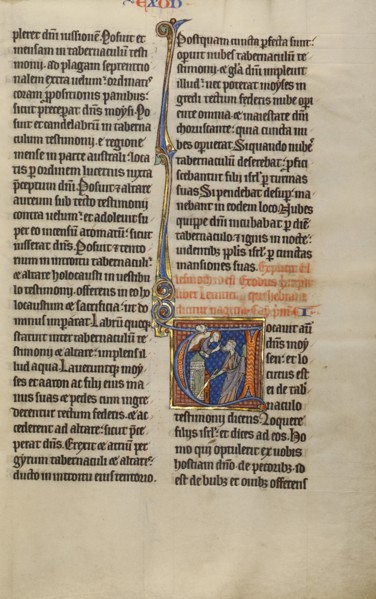 EXOD
pleret dñi iussionē. Posuit et
mensam in tabernaculū testi
monii. ad plagam septentrio
nalem extra uelum: ordinatis
coram ꝓpositionis panibus:
sicut preceperat dñs moysi. Po
suit et candelabrū in taberna
culum testimonii. e regione
mense in parte australi: loca
tis per ordinem lucernis iuxta
p̃ceptum dñi. Posuit et altare
aureum sub tecto testimonii
contra uelum: et adoleuit su
per eo incensū aromatum: sicut
iusserat dñs. Posuit et tento
rium in introitu tabernaculi:
et altare holocausti in uestibu
lo testimonii. offerens in eo ho
locaustum et sacrificia: ut do
minus imperarat. Labrum quoqȝ
statuit inter tabernaculū te
stimonii et altare: implens il
lud aqua. Laueruntqȝ moy
ses et aaron ac filii eius ma
nus suas et pedes cum ingre
derentur tectum federis. et ac
cederent ad altare: sicut p̃ce
perat dñs. Erexit et atriū per
gyrum tabernaculi et altaris:
ducto in introitu eius tentorio.
Postquam cuncta ꝑfecta sunt:
operuit nubes tabernaculū te
stimonii et gl̃a dñi impleuit
illud: nec poterat moyses in
gredi tectum federis nube ope
riente omnia. et maiestate dñi
choruscante: quia cuncta nu
bes operuerat. Siquando nubes
tabernaculū deserebat: ꝓfici
scebantur filii isrl̃ ꝑ turmas
suas. Si pendebat desuꝑ. ma
nebant in eodem loco. Nubes
quippe dñi incubabat ꝑ diē
tabernaculo. et ignis in nocte:
uidentibꝫ pplis isrl̃ ꝑ cunctas
mansiones suas. Explicit el
lesmoth .i. Exodus.
liber Leuitic
I.
Vocauit aũ
dñs moy
sen: et lo
cutus est
ei de tab
naculo
testimonii dicens. Loquere
filiis isrl̃. et dices ad eos. Ho
mo qui optulerit ex uobis
hostiam dño. de pecoribꝫ. id
est de bubꝫ et ouibꝫ offerens